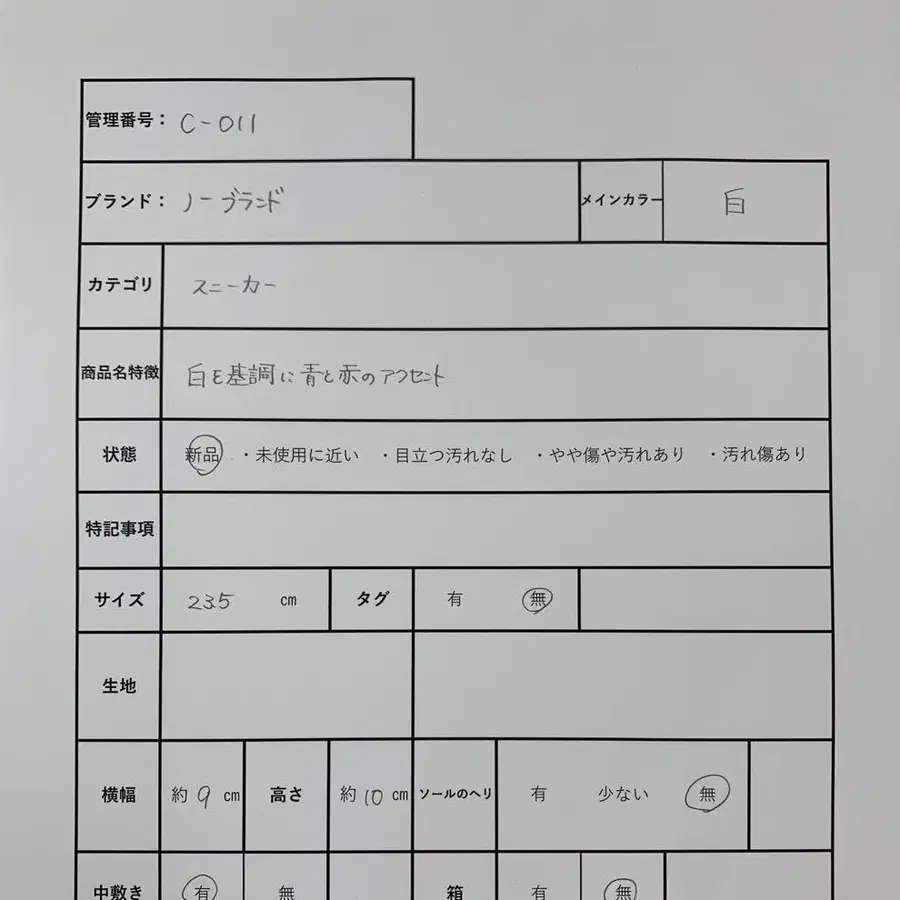 管理番号： C-011
ブランド： ノーブランド メインカラー 白
カテゴリ スニーカー
商品名特徴 白を基調に青と赤のアクセント
状態 新品 ・未使用に近い ・目立つ汚れなし ・やや傷や汚れあり ・汚れ傷あり
特記事項
サイズ 23.5 cm タグ 有 無
生地
横幅 約 9 cm 高さ 約 10 cm ソールのヘリ 有 少ない 無
中敷き 有 無 箱 有 無